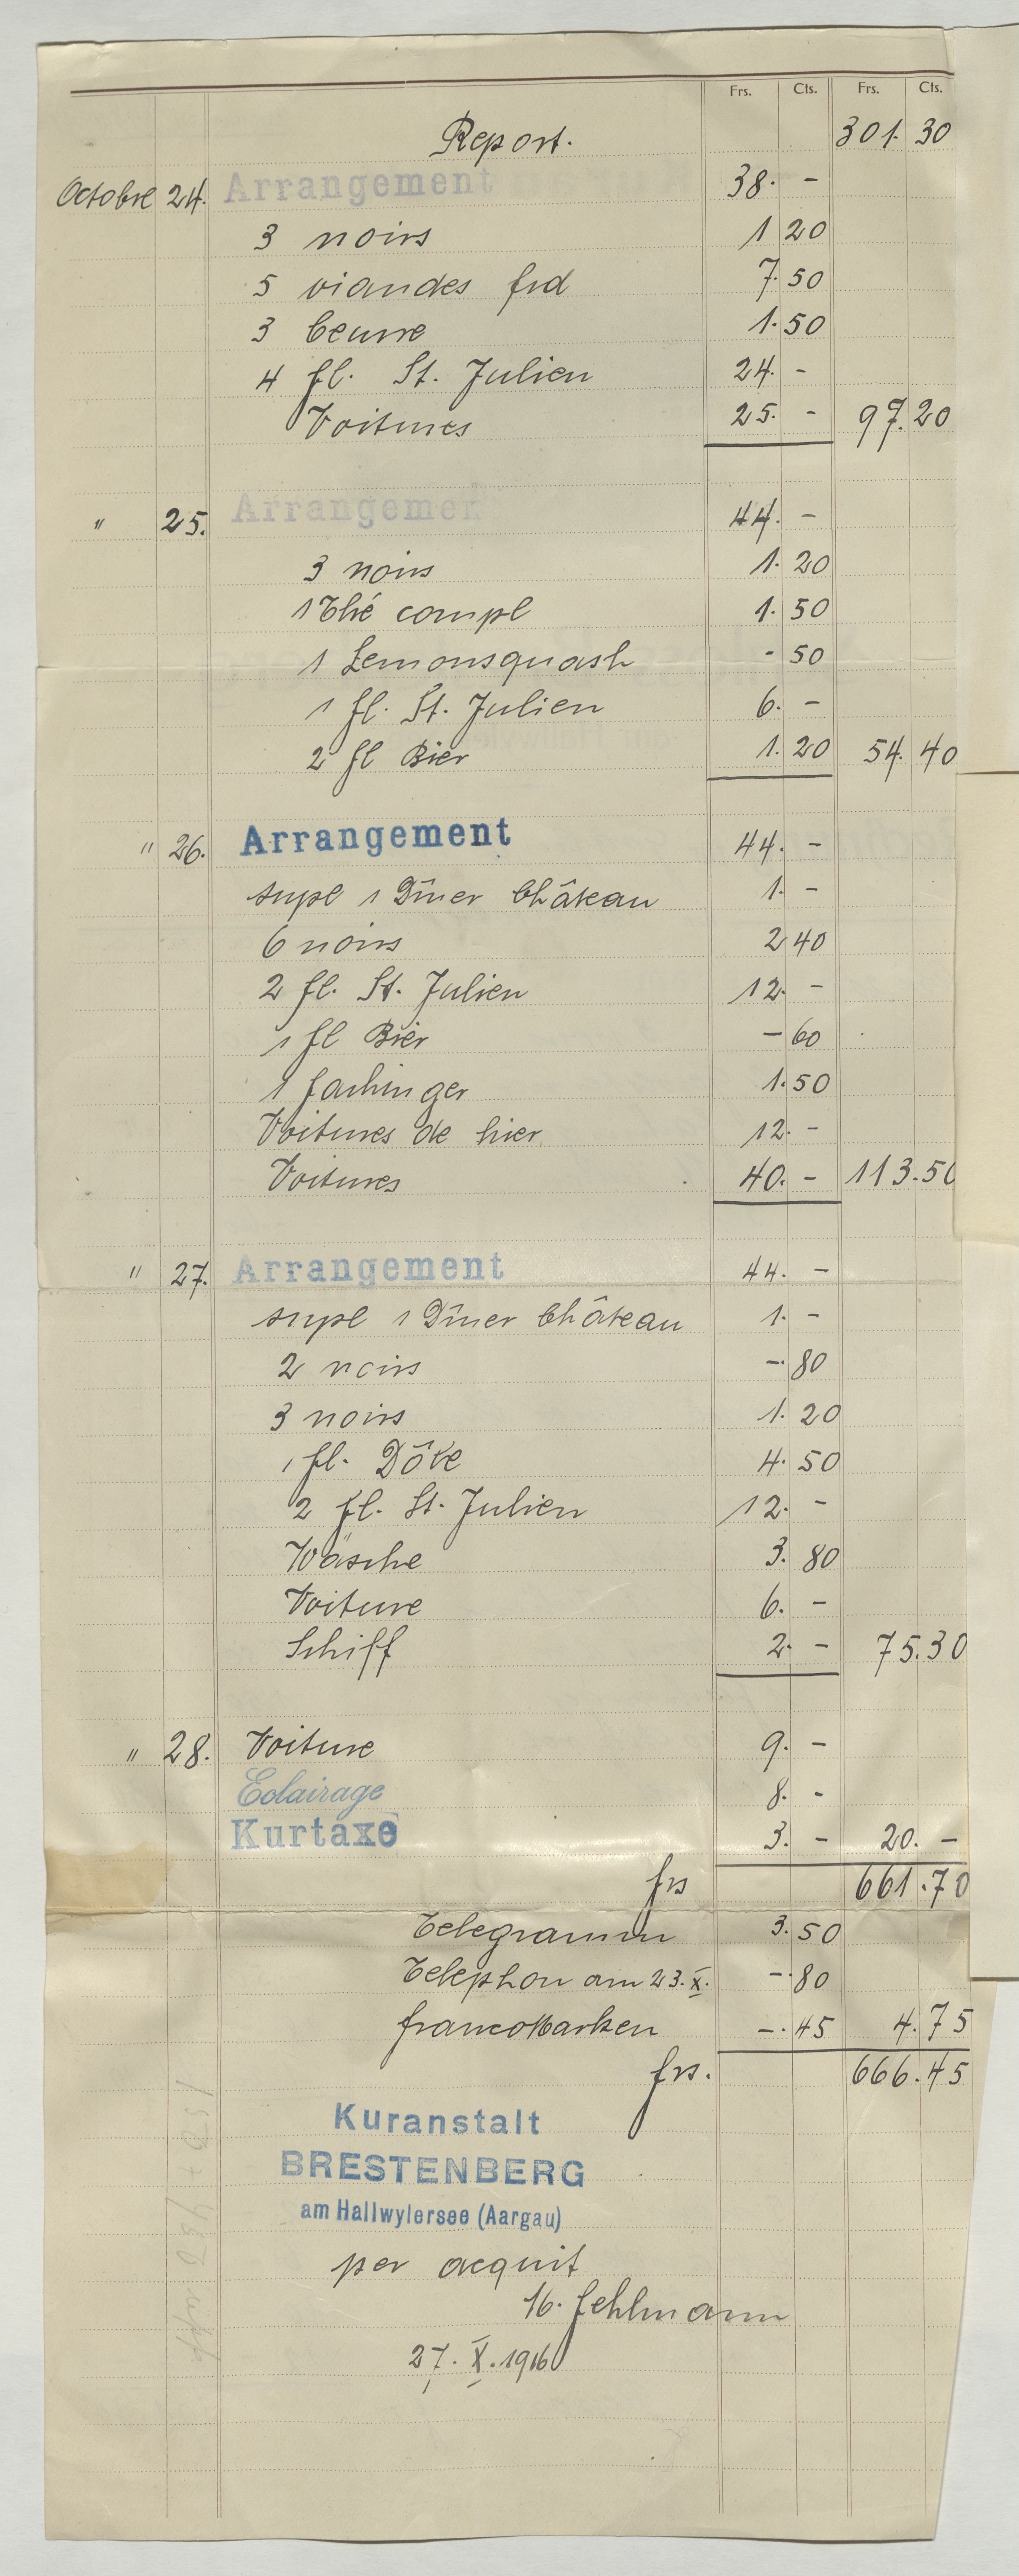 Frs. Cts. Frs. Cts.
Report. 301. 30
Octobre 24. Arrangement 38. -
3 noirs 1 20
5 viandes frd 7. 50
3 beurre 1. 50
4 fl. St. Julien 24. -
Voitures 25. - 97. 20
" 25. Arrangement 44. -
3 noirs 1. 20
1 Thé compl 1. 50
1 Lemonsquash - 50
1 fl. St. Julien 6. -
2 fl Bier 1. 20 54. 40
" 26. Arrangement 44. -
supl 1 Dîner Château 1. -
6 noirs 2 40
2 fl. St. Julien 12. -
1 fl Bier - 60
1 Fachinger 1. 50
Voitures de hier 12. -
Voitures 40. - 113. 50
" 27. Arrangement 44. -
supl 1 Dîner Château 1. -
2 noirs -. 80
3 noirs 1. 20
1 fl. Dôle 4. 50
2 fl. St. Julien 12. -
Wäsche 3. 80
Voiture 6. -
Schiff 2. - 75. 30
" 28. Voiture 9. -
Eclairage 8. -
Kurtaxe 3. - 20. -
frs 661. 70
Telegramm 3. 50
Telephon am 23. X. -. 80
francoMarken -. 45 4. 75
frs. 666. 45
Kuranstalt
BRESTENBERG
am Hallwylersee (Aargau)
per acquit
Fehlmann
27. X. 1916